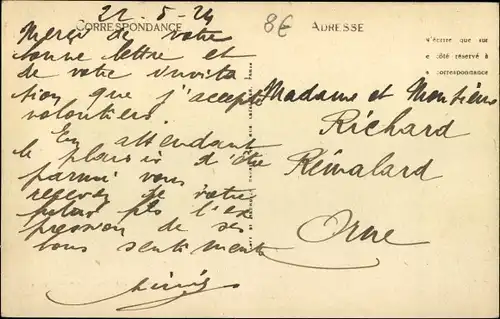 22-5-24
8€
CORRESPONDANCE
ADRESSE
Merci de votre
bonne lettre et
de votre invita
tion que j'accepte
volontiers.
En attendant
le plaisir d'être
parmi vous
recevez de votre
l'ex
pression de ses
bons sentiments
n'écrire que sur
e côté réservé à
a correspondance
Madame et Monsieur
Richard
Rémalard
Orne